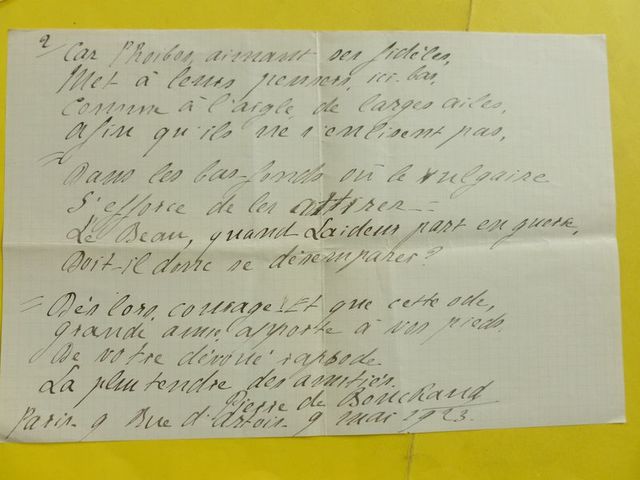 2
= Car Phoibos, aimant ses fidèles,
Met à leurs pensers, ici-bas,
Comme à l'aigle, de larges ailes,
Afin qu'ils ne s'enlisent pas,
= Dans les bas-fonds où le vulgaire
S'efforce de les attirer =
Le Beau, quand Laideur part en guerre,
Doit-il donc se désemparer?
= Dès lors, courage! Et que cette ode,
grande amie, apporte à vos pieds.
De votre dévoué rapsode
La plus tendre des amitiés.
Pierre de
Paris. 9 Rue d'Artois. 9 mai 1923.